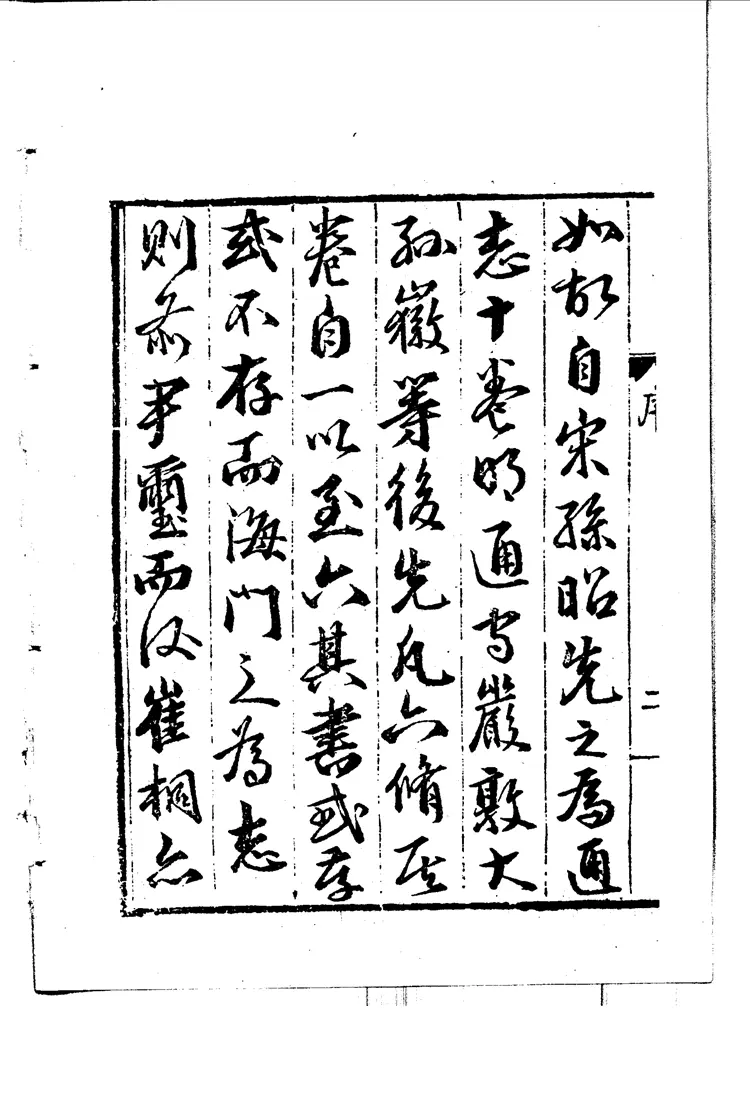 序
二
如故自宋孫昭先之為通
志十卷明通守嚴敦大
孫徽等後先凡六脩其
卷自一以至六其書或存
或不存而海門之為志
則前尹璽而後崔桐亦